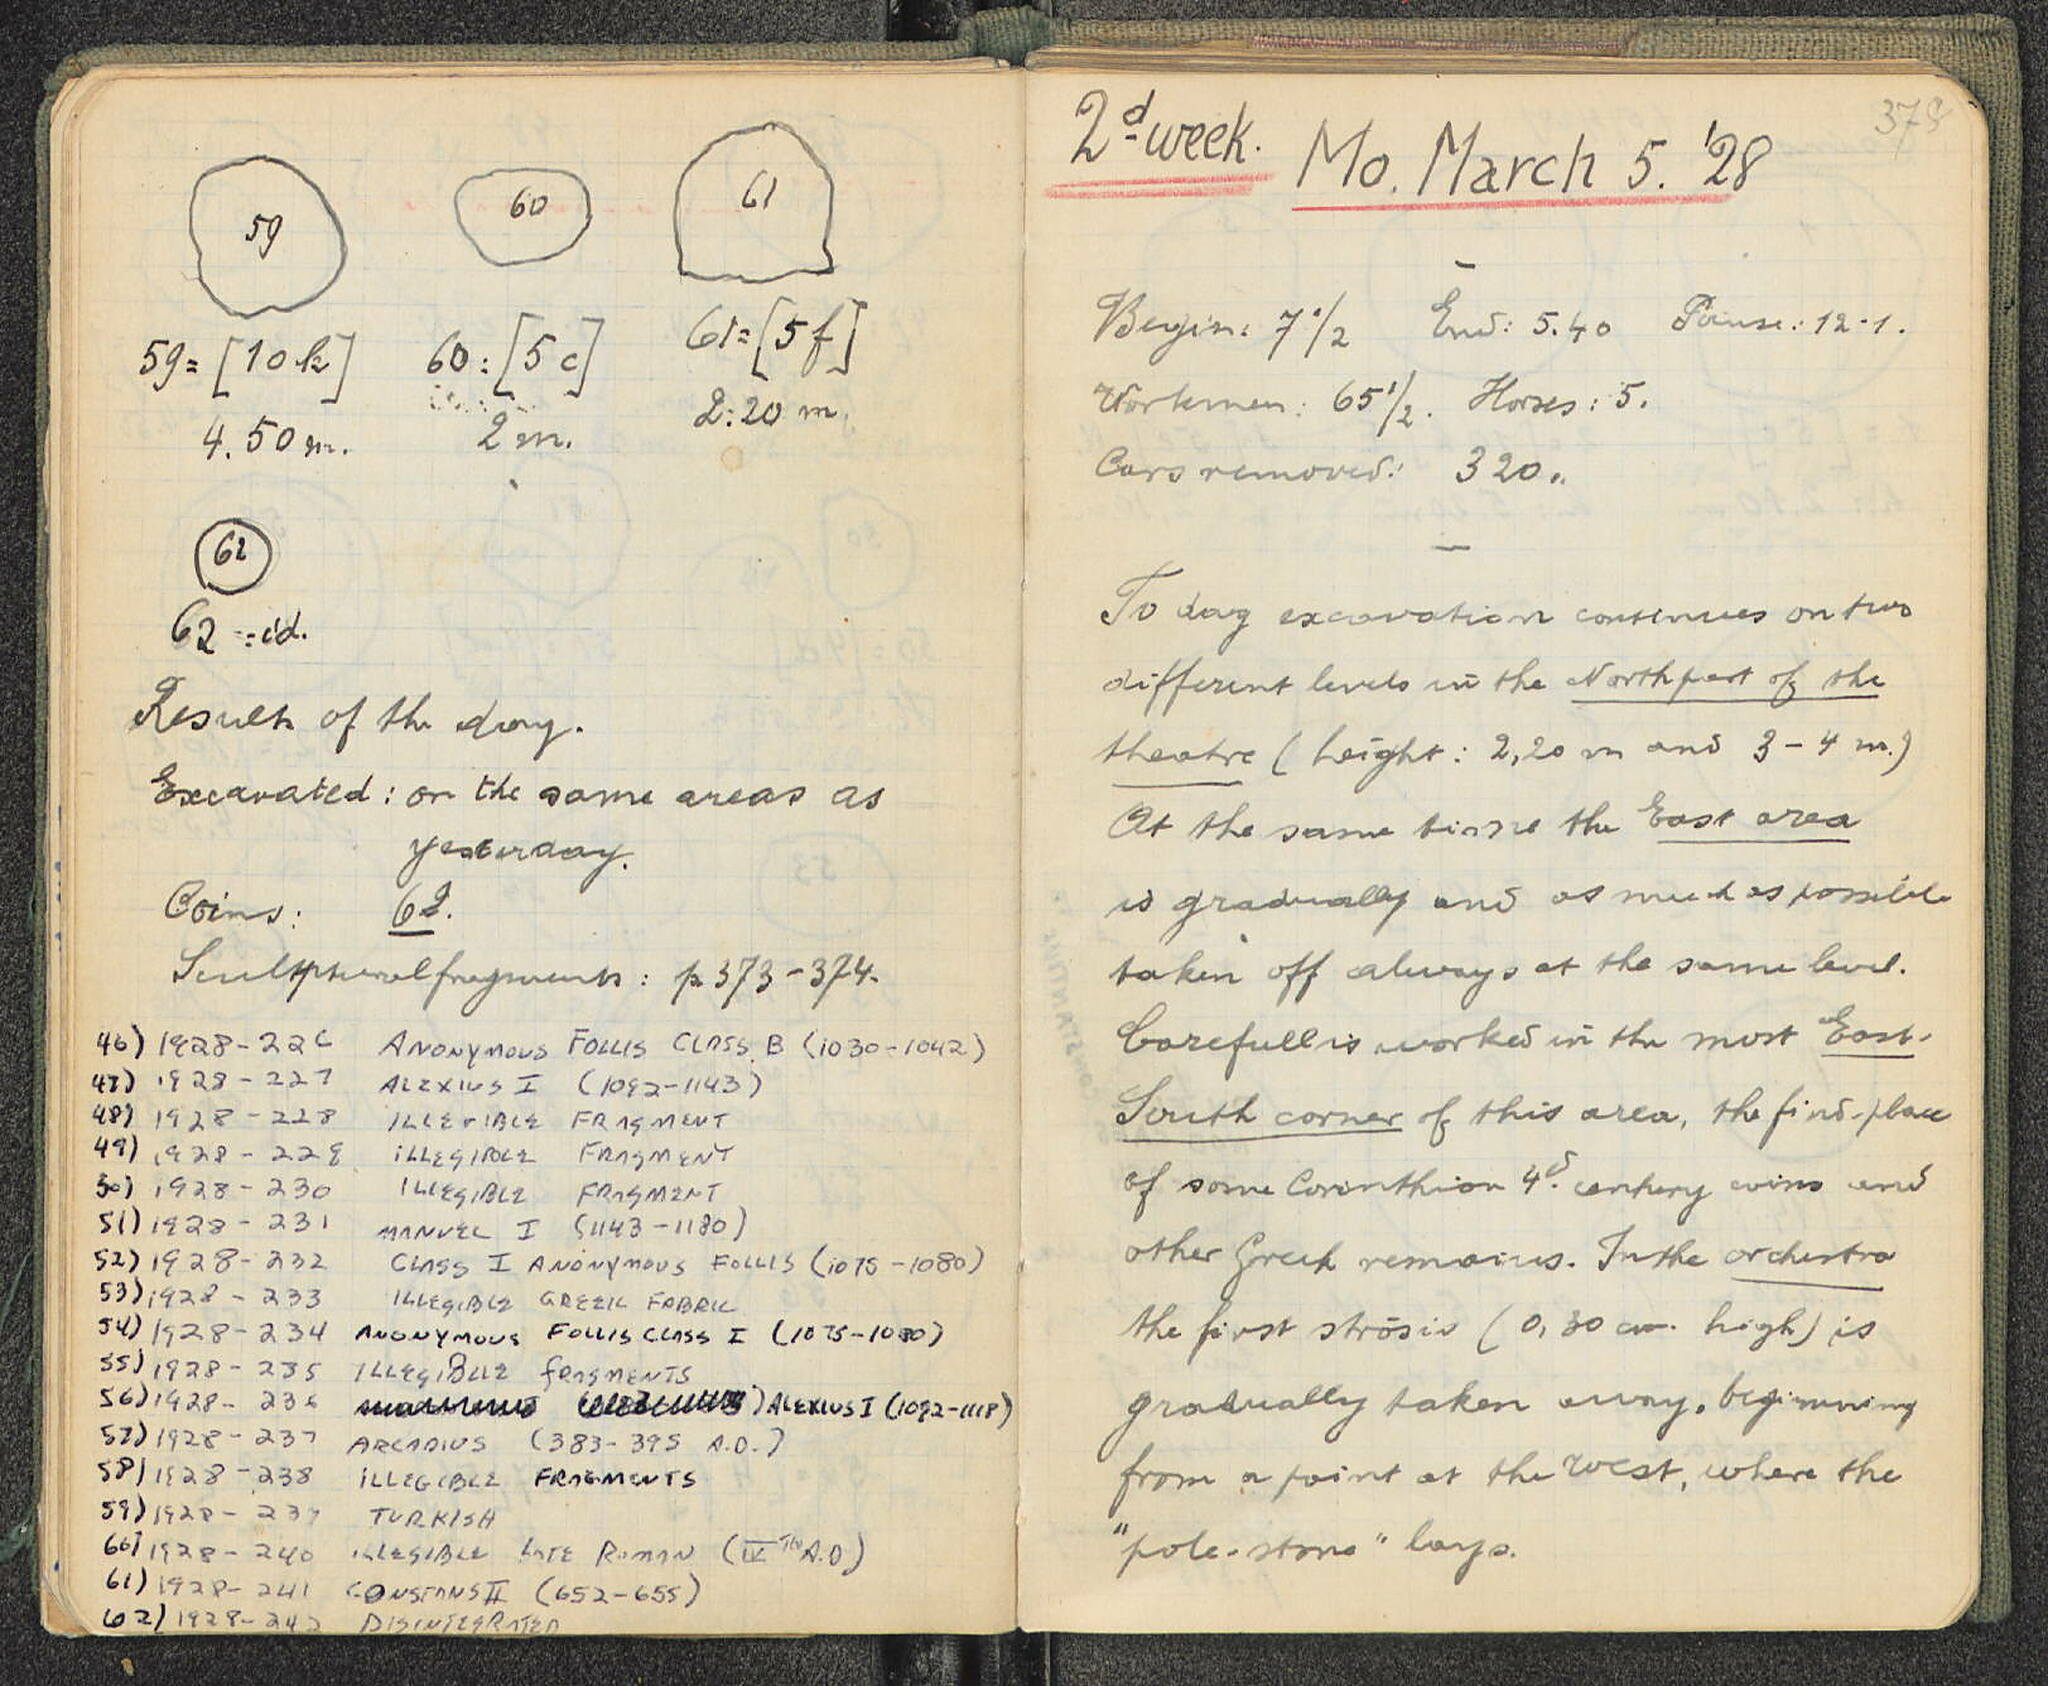 59
60
61
59=[10k]
60=[5c]
61=[5f]
4.50 m.
2 m.
2.20 m.
62
62 = id.
Results of the day.
Excavated: on the same areas as
yesterday.
Coins: 62.
Sculptural fragments: p. 373-374.
46) 1928-226 ANONYMOUS FOLLIS CLASS B (1030-1042)
47) 1928-227 ALEXIUS I (1092-1143)
48) 1928-228 ILLEGIBLE FRAGMENT
49) 1928-229 ILLEGIBLE FRAGMENT
50) 1928-230 ILLEGIBLE FRAGMENT
51) 1928-231 MANUEL I (1143-1180)
52) 1928-232 CLASS I ANONYMOUS FOLLIS (1075-1080)
53) 1928-233 ILLEGIBLE GREEK FABRIC
54) 1928-234 ANONYMOUS FOLLIS CLASS I (1075-1080)
55) 1928-235 ILLEGIBLE FRAGMENTS
56) 1928-236 ALEXIUS I (1092-1118)
57) 1928-237 ARCADIUS (383-395 A.D.)
58) 1928-238 ILLEGIBLE FRAGMENTS
59) 1928-239 TURKISH
60) 1928-240 ILLEGIBLE LATE ROMAN (IVTH A.D)
61) 1928-241 CONSTANS II (652-655)
62) 1928-242 DISINTEGRATED
2d week. Mo. March 5. '28
Begin: 7 1/2 End: 5.40 Pause: 12-1.
Workmen: 65 1/2. Horses: 5.
Cars removed: 320.
To day excavation continues on two
different levels in the North part of the
theatre (height: 2,20 m and 3-4 m.)
At the same time the East area
is gradually and as much as possible
taken off always at the same level.
Carefull is worked in the most East-
South corner of this area, the find-place
of some Corinthian 4d. century coins and
other Greek remains. In the orchestra
the first strōsis (0,30 cm. high) is
gradually taken away, beginning
from a point at the West, where the
"pole-stone" lays.